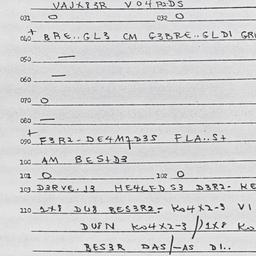 VAJX83R VO4 PODS
031 O 032 O
040 + BRE..GL3 CM G3BRE..GLDI GR
050 —
060 —
070 O
080 —
090 + F3R2- DE4M7D3S FLA..S+
100 AM BES+D3
101 O 102 O
103 D3RVE.13 HE4LFD S3 D3R2- HE
110 1X8 DU8 BES3R2- KO4X2-3 VI
DU8N KO4X2-3 //1X8 KO
BES3R DAS/-AS DI..